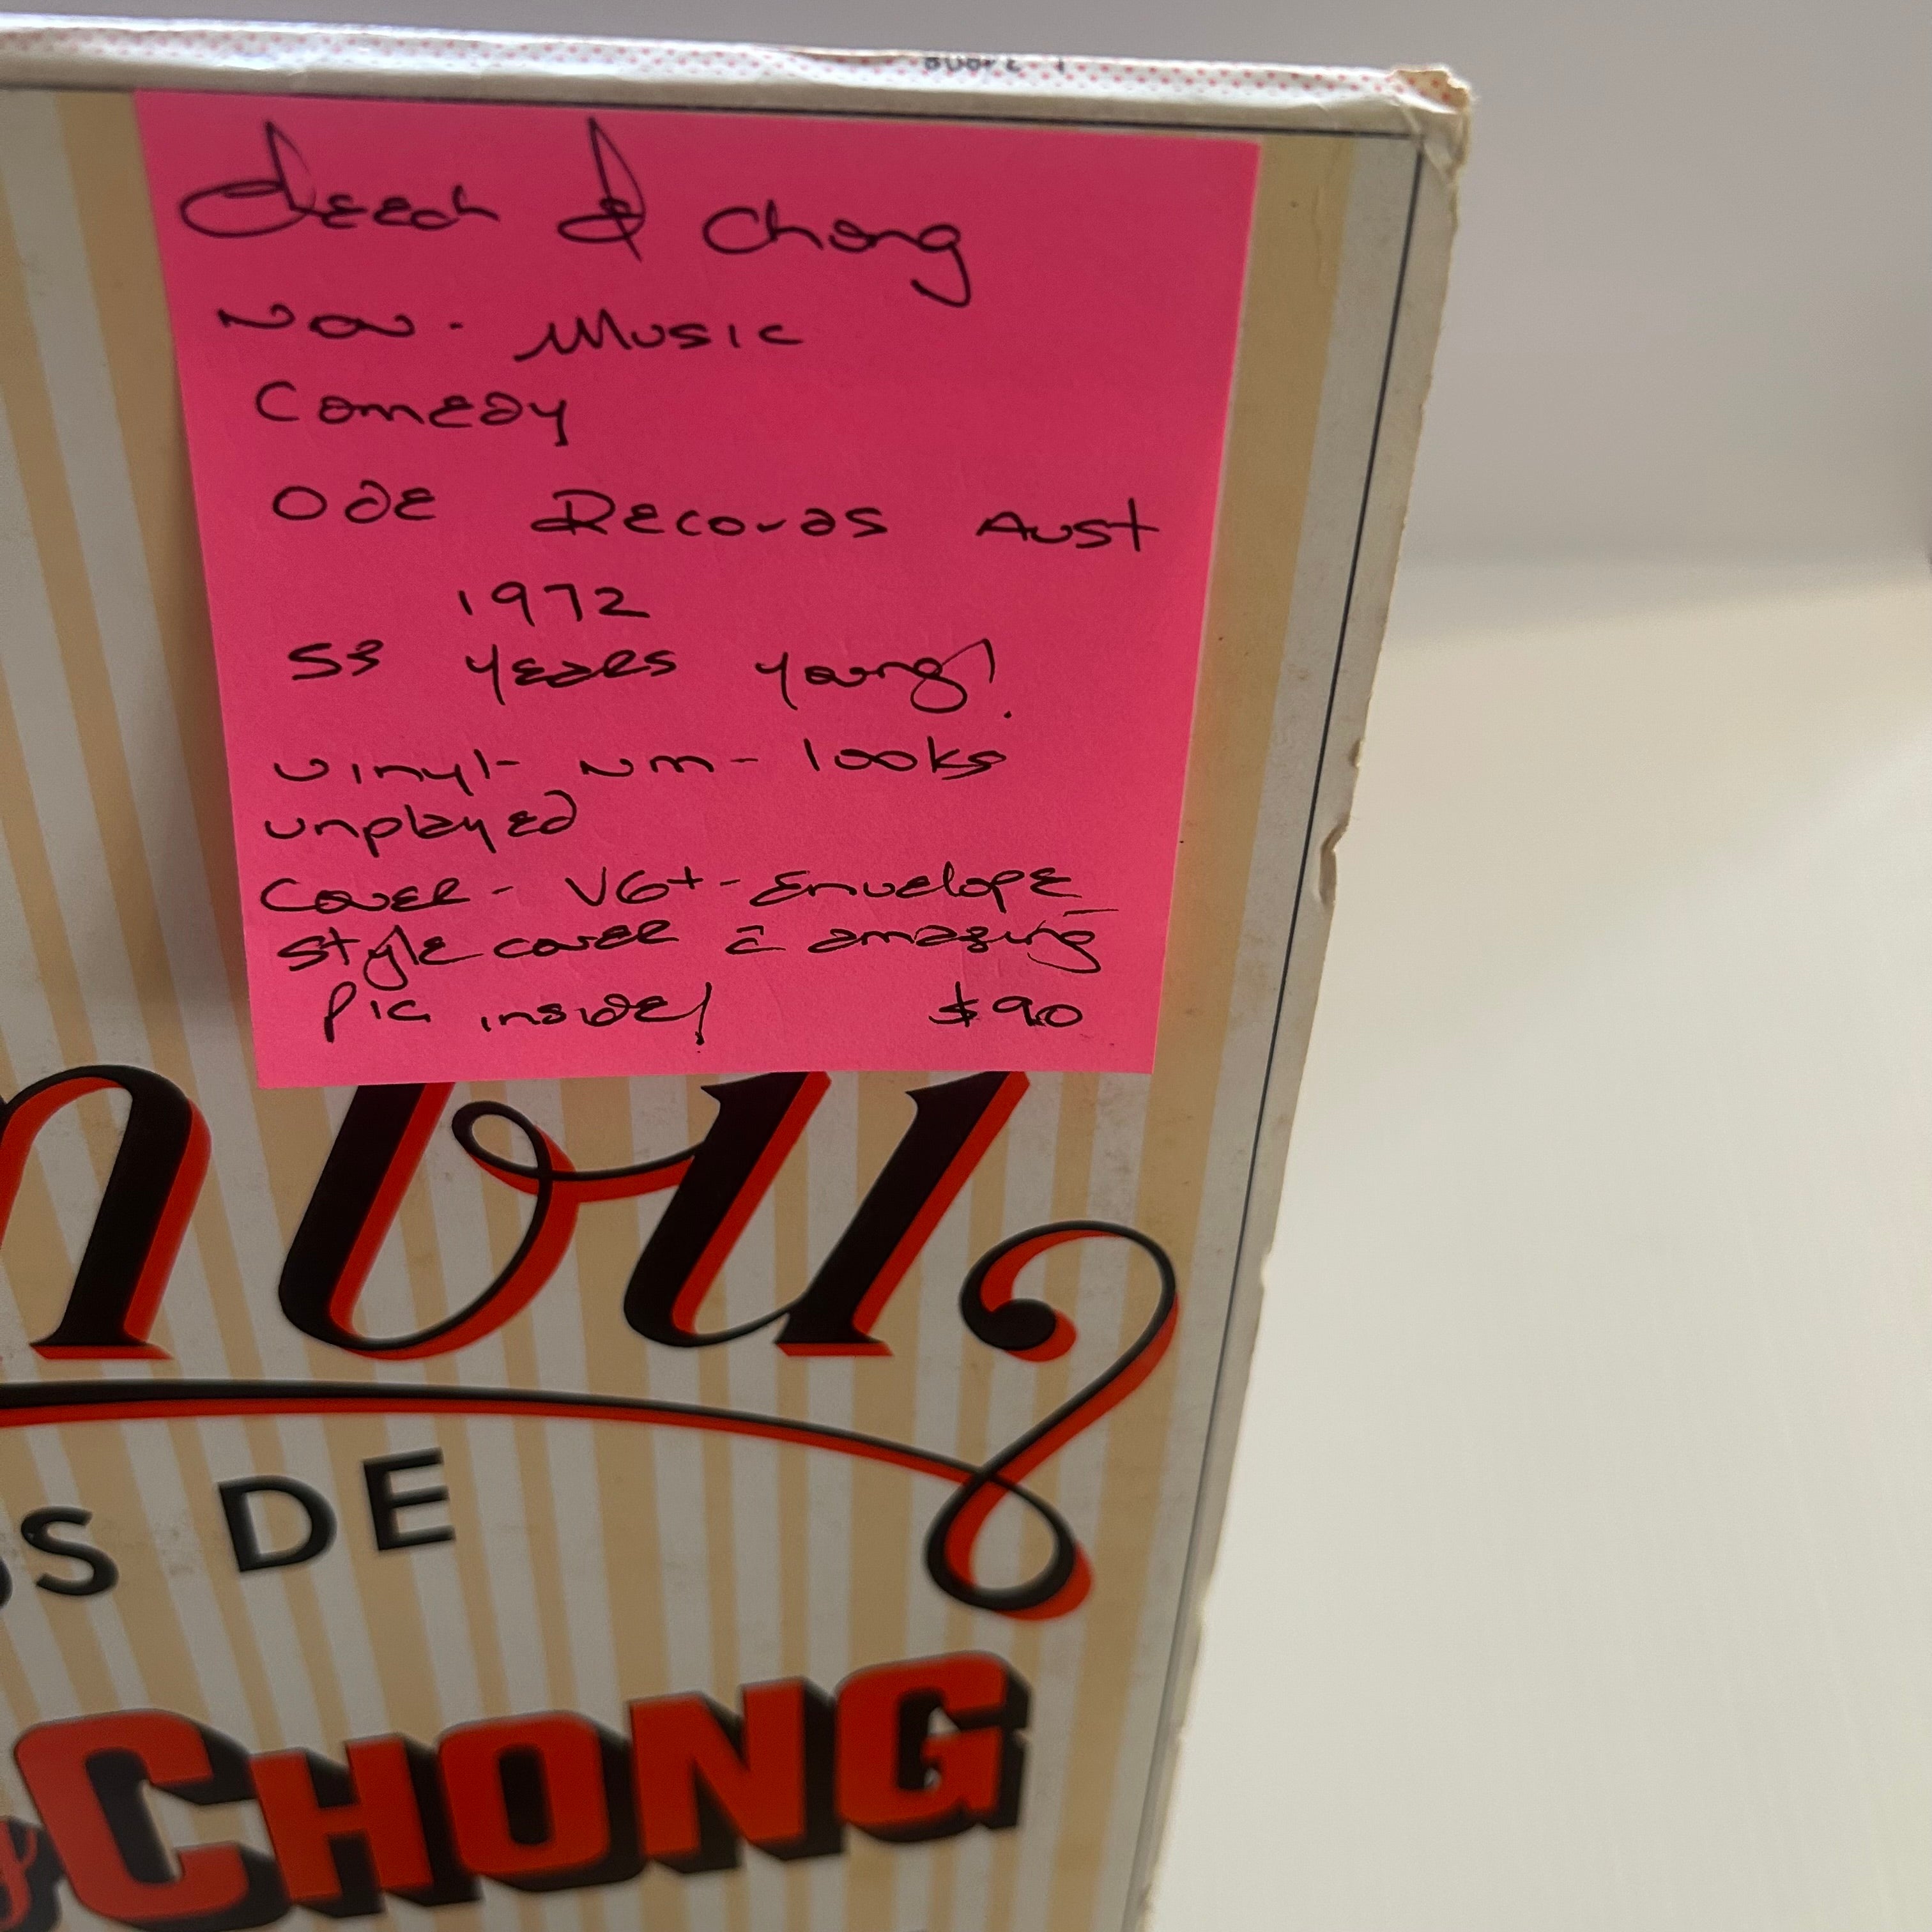 Cheech & Chong
Non-Music
Comedy
Ode Records Aust
1972
53 years young!
Vinyl - NM - looks
unplayed
Cover - VG+ - Envelope
style cover c̄ amazing
pic inside! $90
nbu
OS DE
CHONG